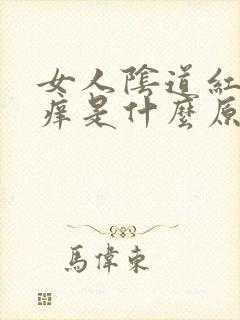 女人陰道紅
痒是什麼原
馬偉東